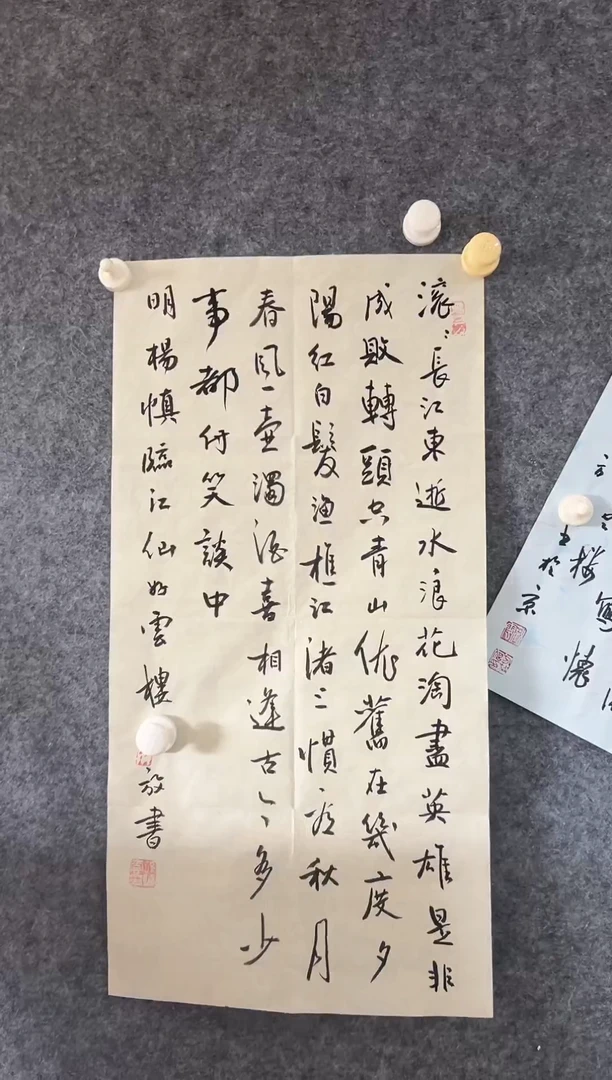 滚〻長江東逝水浪花淘盡英雄是非
成敗轉頭空青山依舊在幾度夕
陽紅白髮渔樵江渚上慣看秋月
春風一壺濁酒喜相逢古今多少
事都付笑談中
明楊慎臨江仙雲樓放書
懷
樓
於京